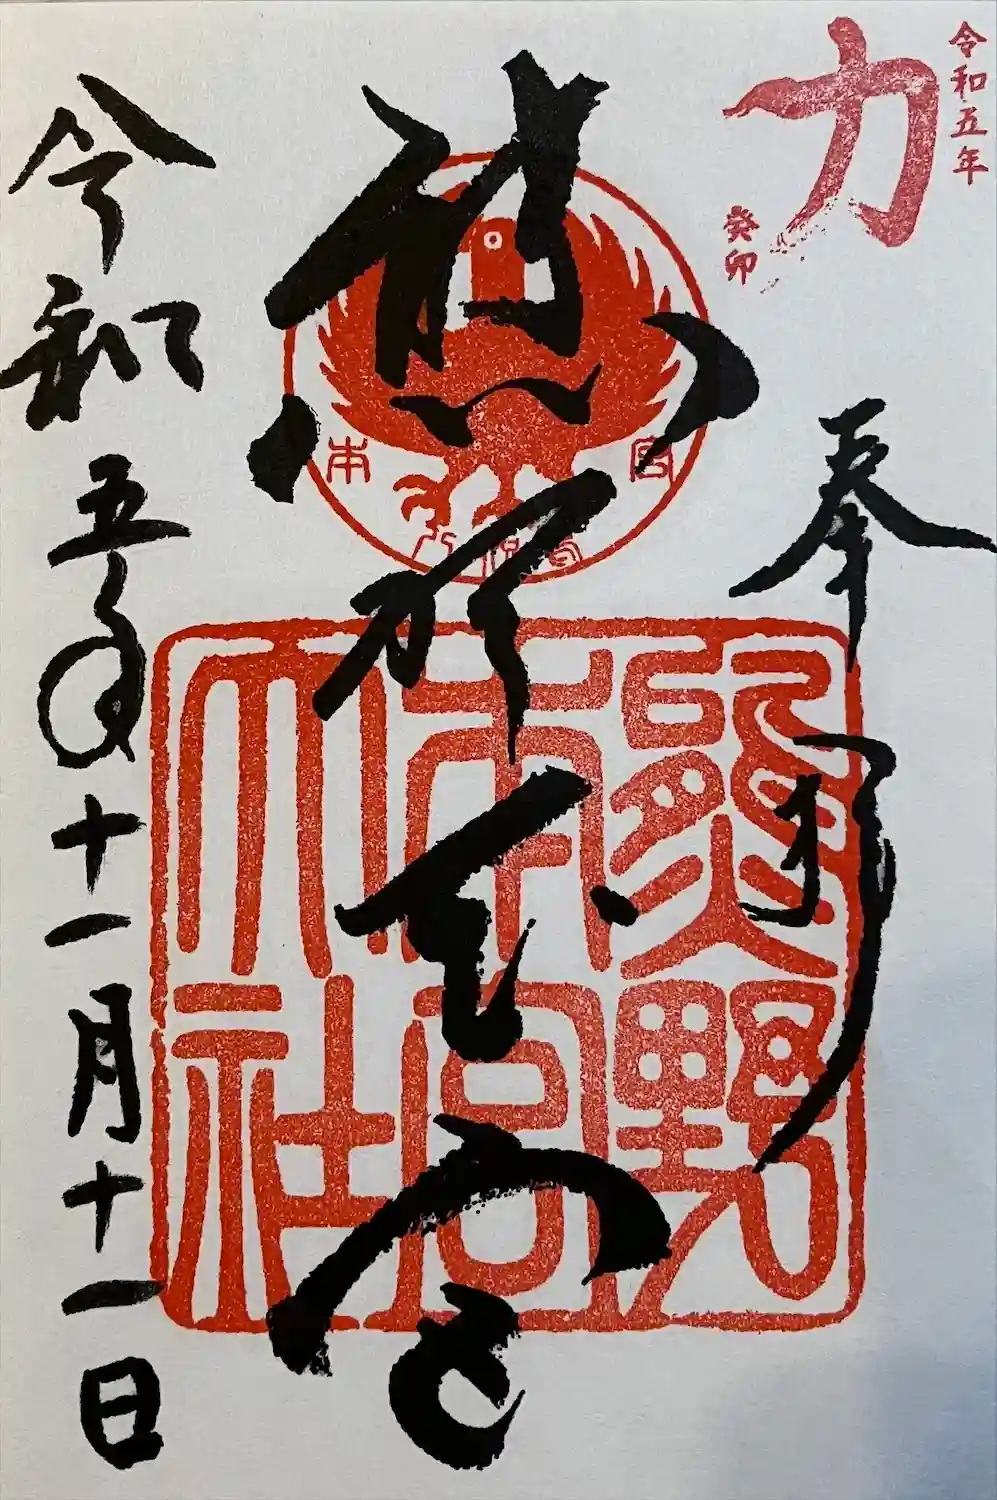 令和五年
力
癸卯
奉拝
熊野本宮
令和五年十一月十一日
本
宮
熊野本宮大社